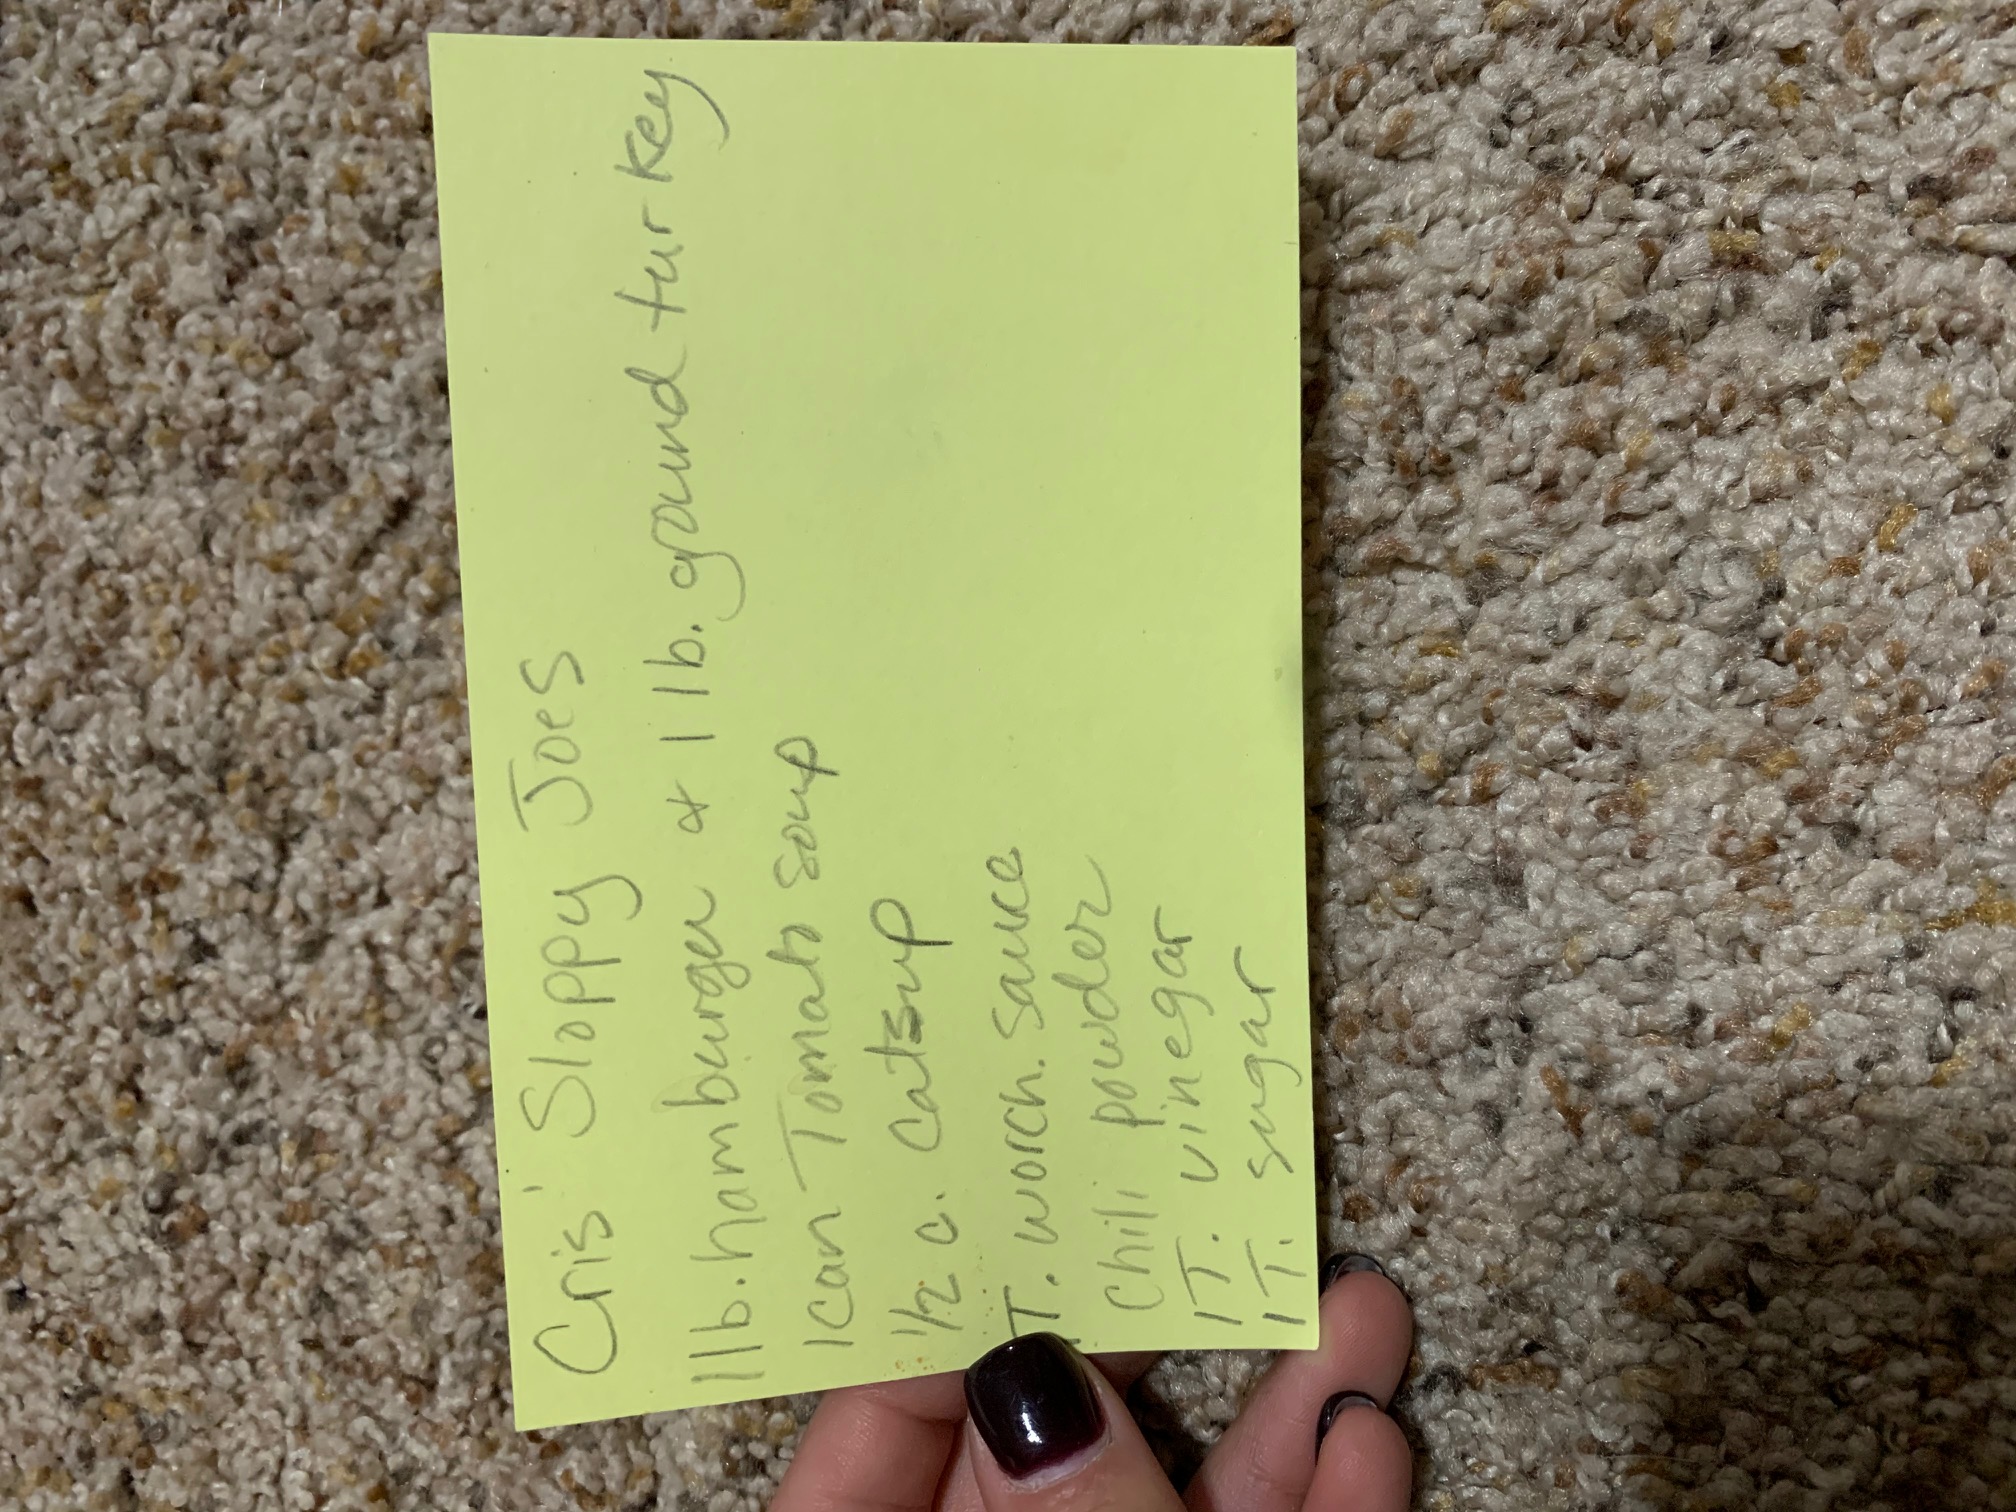 Cris' Sloppy Joes
1 lb. hamburger & 1 lb. ground turkey
1 can Tomato soup
1/2 c. catsup
T. worch. sauce
Chili powder
1 T. vinegar
1 T. sugar